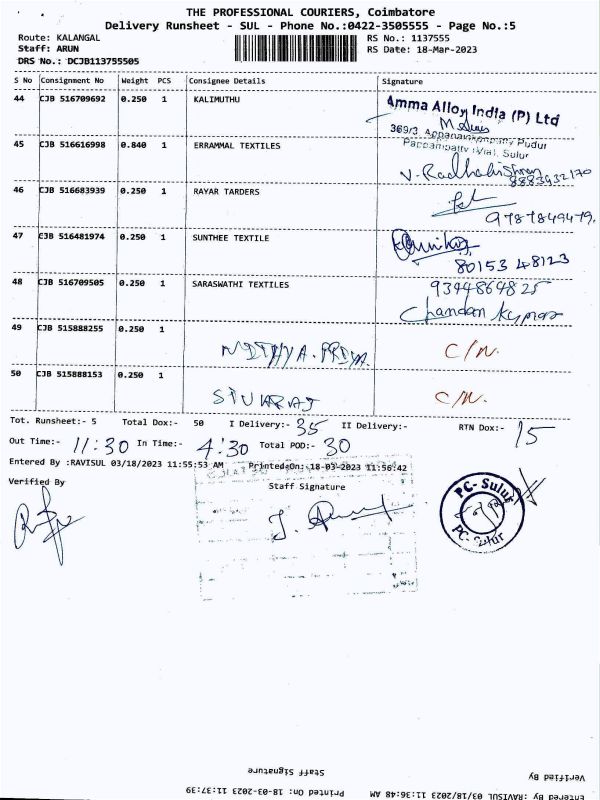 THE PROFESSIONAL COURIERS, Coimbatore
Delivery Runsheet - SUL - Phone No.:0422-3505555 - Page No.:5
Route: KALANGAL RS No.: 1137555
Staff: ARUN RS Date: 18-Mar-2023
DRS No.: DCJB113755505
S No Consignment No Weight PCS Consignee Details Signature
44 CJB 516709692 0.250 1 KALIMUTHU Amma Alloy India (P) Ltd
369/3 Appanaickenpatty Pudur
Pappampatty (Via), Sulur
45 CJB 516616998 0.840 1 ERRAMMAL TEXTILES
V. Radhakrishnan
8883932170
46 CJB 516683939 0.250 1 RAYAR TARDERS
9787849479.
47 CJB 516481974 0.250 1 SUNTHEE TEXTILE
80153 48123
48 CJB 516709505 0.250 1 SARASWATHI TEXTILES 9344864825
Chandan Kumar
49 CJB 515888255 0.250 1
NITHYA.PRIYA. C/N.
50 CJB 515888153 0.250 1
SIVARAJ C/N.
Tot. Runsheet:- 5 Total Dox:- 50 I Delivery:- 35 II Delivery:- RTN Dox:- 15
Out Time:- 11:30 In Time:- 4:30 Total POD:- 30
Entered By :RAVISUL 03/18/2023 11:55:53 AM Printed On: 18-03-2023 11:56:42
Verified By Staff Signature
PC- Sulur
PC- Sulur
Staff Signature Verified By
Entered By :RAVISUL 03/18/2023 11:36:48 AM Printed On: 18-03-2023 11:37:39